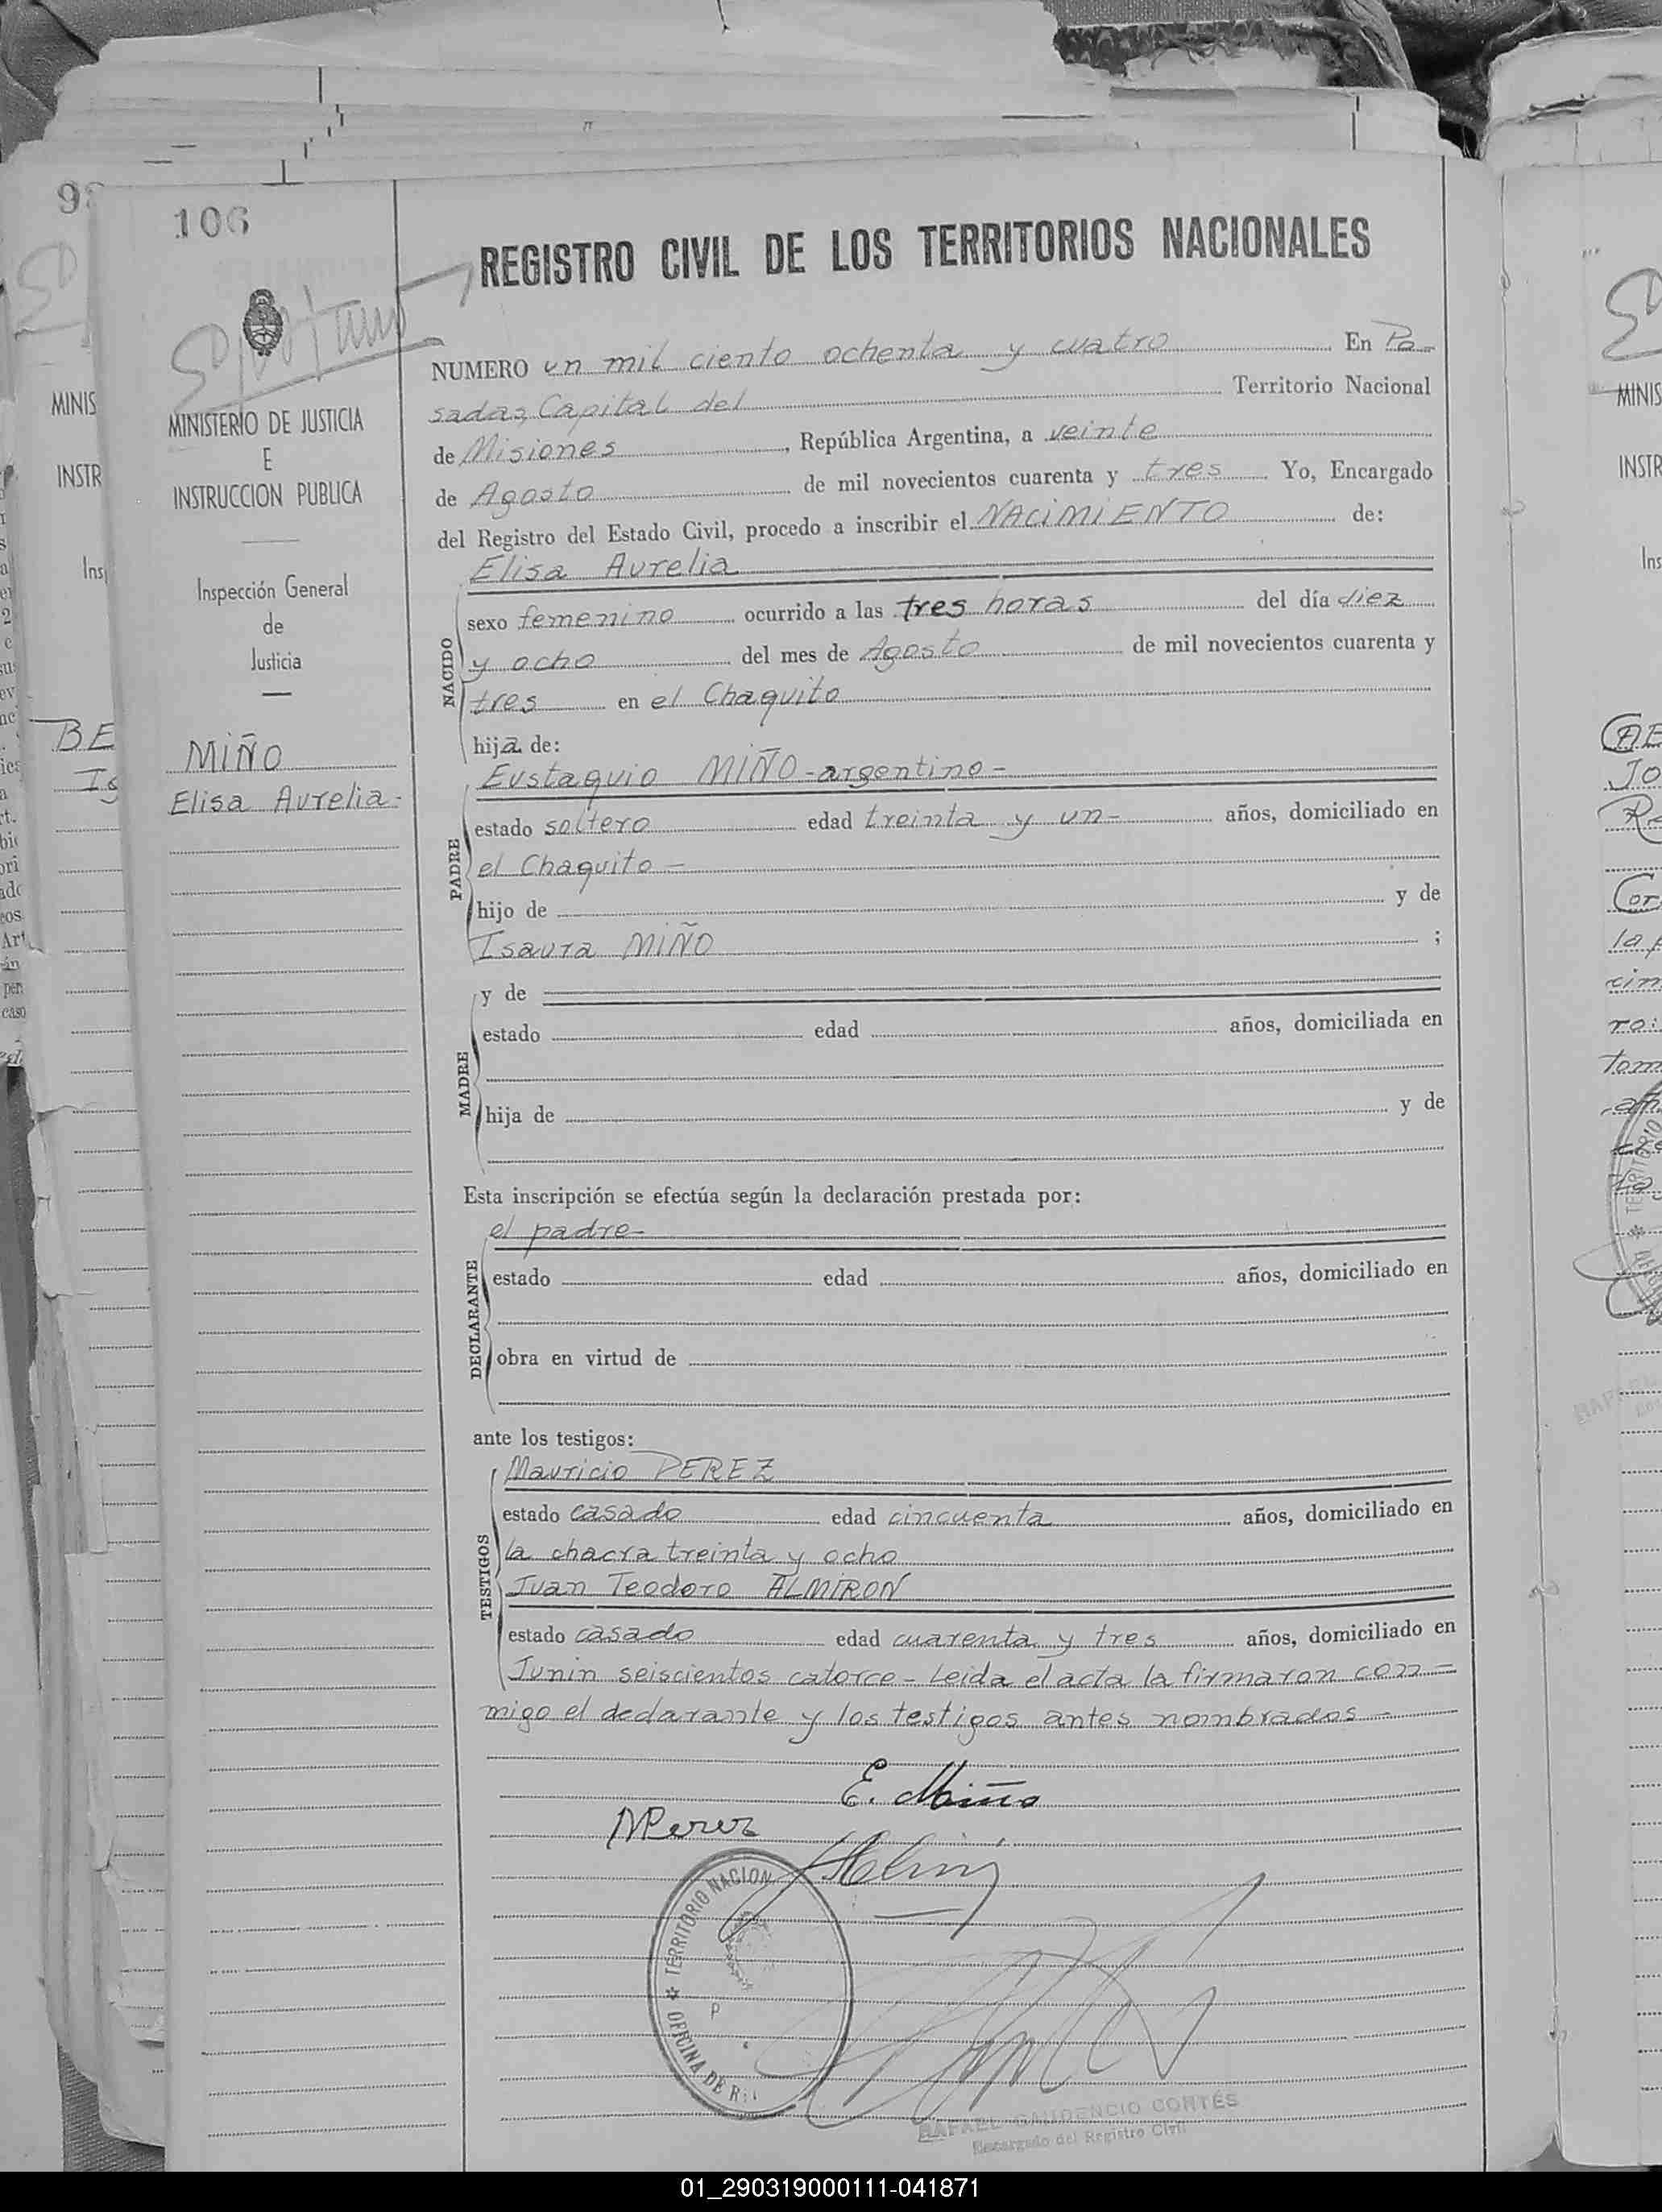 106
REGISTRO CIVIL DE LOS TERRITORIOS NACIONALES
MINISTERIO DE JUSTICIA
E
INSTRUCCION PUBLICA
Inspección General
de
Justicia
MIÑO
Elisa Aurelia-
NUMERO un mil ciento ochenta y cuatro En Po
sadas, Capital del Territorio Nacional
de Misiones, República Argentina, a veinte
de Agosto de mil novecientos cuarenta y tres Yo, Encargado
del Registro del Estado Civil, procedo a inscribir el NACIMIENTO de:
NACIDO
Elisa Aurelia
sexo femenino ocurrido a las tres horas del día diez
y ocho del mes de Agosto de mil novecientos cuarenta y
tres en el Chaquito
hija de:
PADRE
Eustaquio MIÑO-argentino-
estado soltero edad treinta y un- años, domiciliado en
el Chaquito-
hijo de y de
Isaura MIÑO ;
MADRE
y de
estado edad años, domiciliada en
hija de y de
Esta inscripción se efectúa según la declaración prestada por:
DECLARANTE
el padre-
estado edad años, domiciliado en
obra en virtud de
ante los testigos:
TESTIGOS
Mauricio PEREZ
estado casado edad cincuenta años, domiciliado en
la chacra treinta y ocho
Juan Teodoro ALMIRON
estado casado edad cuarenta y tres años, domiciliado en
Junin seiscientos catorce-Leida el acta la firmaron con-
migo el declarante y los testigos antes nombrados-
E. Miño
MPerez
TERRITORIO NACION
OFICINA DE R
RAFAEL GAUDENCIO CORTÉS
Encargado del Registro Civil
01_290319000111-041871